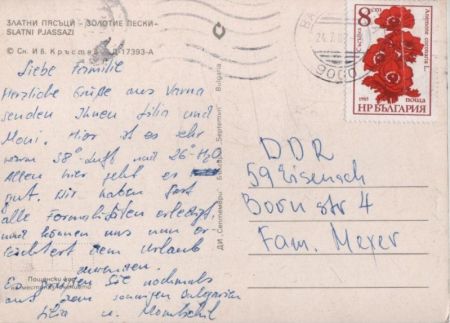 ЗЛАТНИ ПЯСЪЦИ - ЗОЛОТИЕ ПЕСКИ-
SLATNI PJASSAZI
© Сн. Ив. Кръстев Д-17393-А
Liebe Familie
Herzliche Grüße aus Varna
senden Ihnen Lilia und
Moni. Hier ist es sehr
warm 38°-Luft und 26°-H₂O
Allen hier geht es
gut. Wir haben fast
alle Formalitäten erledigt
und können uns nun er
leichtert dem Urlaub
zuwenden.
Es grüßen Sie nochmals
aus dem sonnigen Bulgarien
Lilia u. Momtschil
Пощенски
ДИ „Септември" Bulgaria
8 ст
НРБЪЛГАРИЯ
поща
9000
DDR
59 Eisenach
Bornstr 4
Fam. Meyer